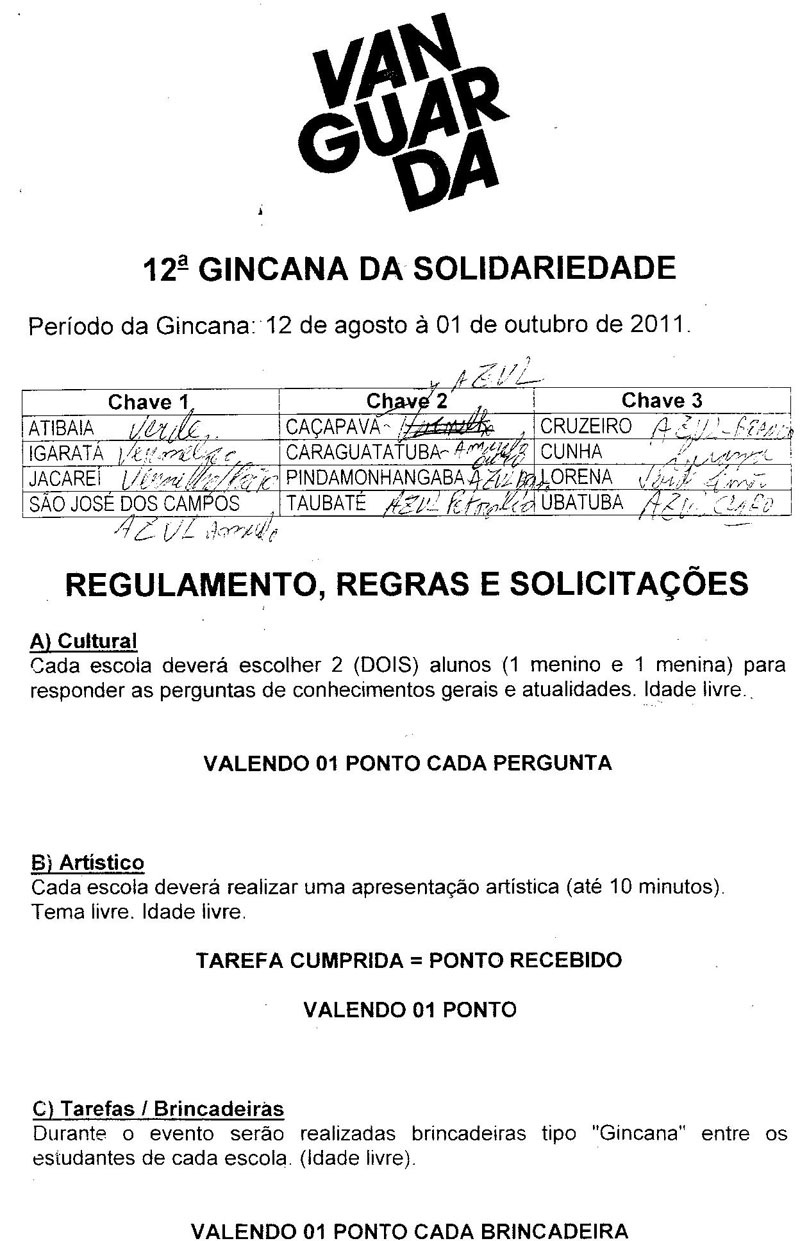 VAN
GUAR
DA
12ª GINCANA DA SOLIDARIEDADE
Período da Gincana: 12 de agosto à 01 de outubro de 2011.
AZUL
Chave 1 Chave 2 Chave 3
ATIBAIA Verde CAÇAPAVA CRUZEIRO AZUL-BRANCO
IGARATÁ Vermelho CARAGUATATUBA Amarelo CUNHA Laranja
JACAREÍ Vermelho/Preto PINDAMONHANGABA AZUL LORENA Verde Limão
SÃO JOSÉ DOS CAMPOS TAUBATÉ AZUL Petróleo UBATUBA AZUL CLARO
AZUL Amarelo
REGULAMENTO, REGRAS E SOLICITAÇÕES
A) Cultural
Cada escola deverá escolher 2 (DOIS) alunos (1 menino e 1 menina) para
responder as perguntas de conhecimentos gerais e atualidades. Idade livre.
VALENDO 01 PONTO CADA PERGUNTA
B) Artístico
Cada escola deverá realizar uma apresentação artística (até 10 minutos).
Tema livre. Idade livre.
TAREFA CUMPRIDA = PONTO RECEBIDO
VALENDO 01 PONTO
C) Tarefas / Brincadeiras
Durante o evento serão realizadas brincadeiras tipo "Gincana" entre os
estudantes de cada escola. (Idade livre).
VALENDO 01 PONTO CADA BRINCADEIRA